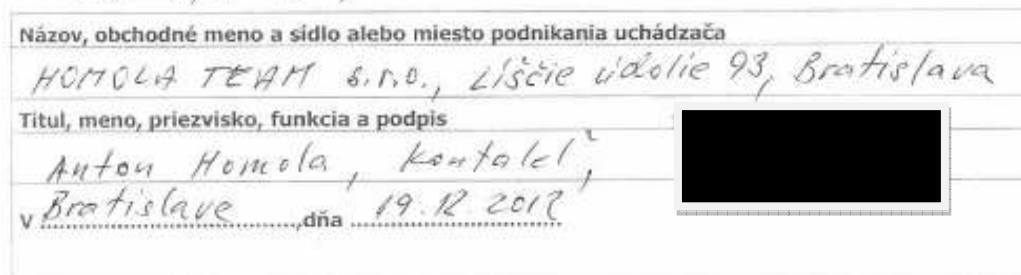 Názov, obchodné meno a sídlo alebo miesto podnikania uchádzača
HOMOLA TEAM s.r.o., Líščie údolie 93, Bratislava
Titul, meno, priezvisko, funkcia a podpis
Anton Homola,
v Bratislave, dňa 19.12.2012